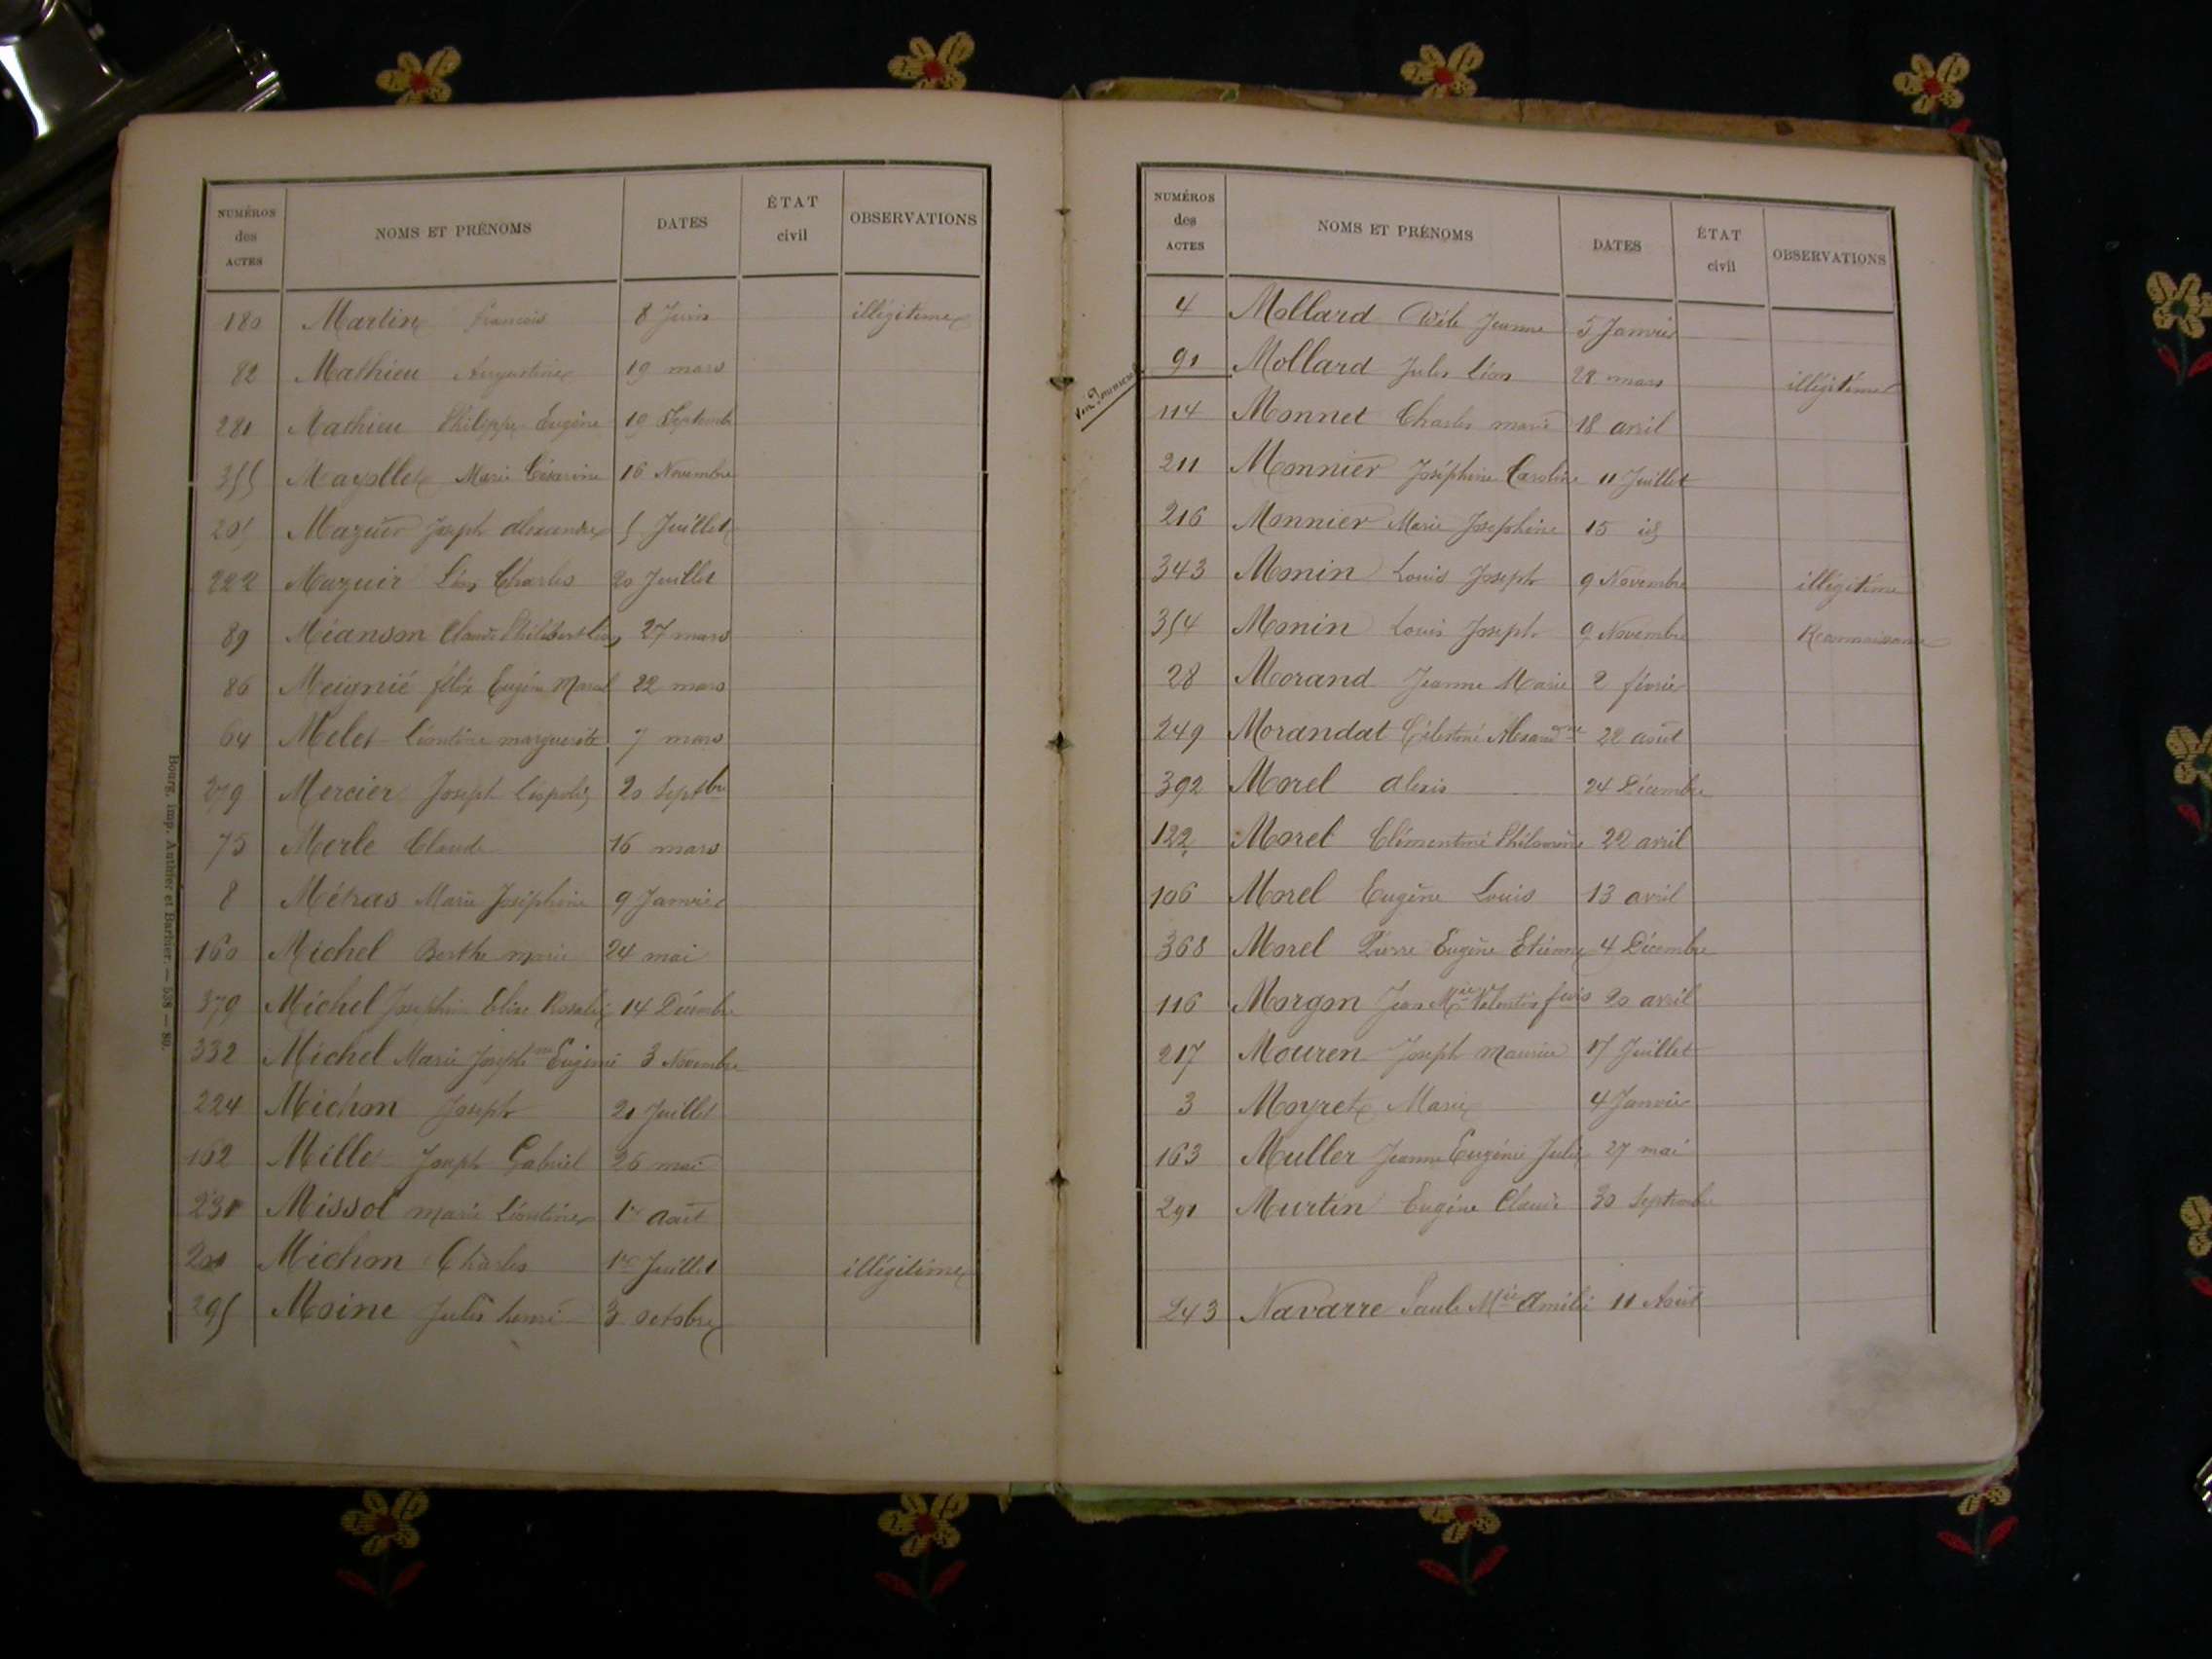 NUMÉROS des ACTES NOMS ET PRÉNOMS DATES ÉTAT civil OBSERVATIONS
180 Martin François 8 Juin illégitime
82 Mathieu Augustine 19 mars
281 Mathieu Philippe Eugène 19 Septembre
355 Mayollet Marie Césarine 16 Novembre
205 Mazuir Joseph Alexandre 5 Juillet
222 Mazuir Léon Charles 20 Juillet
89 Méanson Claude Philibert Léon 27 mars
86 Meignié félix Eugène Marcel 22 mars
64 Melet Léontine marguerite 7 mars
279 Mercier Joseph Léopold 20 Septbre
75 Merle Claude 16 mars
8 Métras Marie Joséphine 9 Janvier
160 Michel Berthe marie 24 mai
379 Michel Joséphine Elise Rosalie 14 Décembre
332 Michel Marie Josephne Eugénie 3 Novembre
224 Michon Joseph 21 Juillet
162 Millet Joseph Gabriel 26 mai
231 Missol marie Léontine 1er Août
Michon Charles 1er Juillet illégitime
295 Moine Jules henri 3 octobre
Bourg, imp. Authier et Barbier. — 538 — 89.
NUMÉROS des ACTES NOMS ET PRÉNOMS DATES ÉTAT civil OBSERVATIONS
4 Mollard Jeanne 5 Janvier
91 Mollard Jules Léon 28 mars illégitime
114 Monnet Charles marie 18 avril
211 Monnier Joséphine Caroline 11 Juillet
216 Monnier Marie Joséphine 15 id
343 Monin Louis Joseph 9 Novembre illégitime
354 Monin Louis Joseph 9 Novembre Reconnaissance
28 Morand Jeanne Marie 2 février
249 Morandat Célestine Alexandrine 22 août
392 Morel Alexis 24 Décembre
122 Morel Clémentine Philomène 22 avril
106 Morel Eugène Louis 13 avril
368 Morel Pierre Eugène Etienne 4 Décembre
116 Morgon Jean Mie Valentin fçois 20 avril
217 Mouren Joseph Maurice 17 Juillet
3 Moyret Marie 4 Janvier
163 Muller Jeanne Eugénie Julie 27 mai
291 Murtin Eugène Claude 30 Septembre
243 Navarre Paule Mie Amélie 11 Août